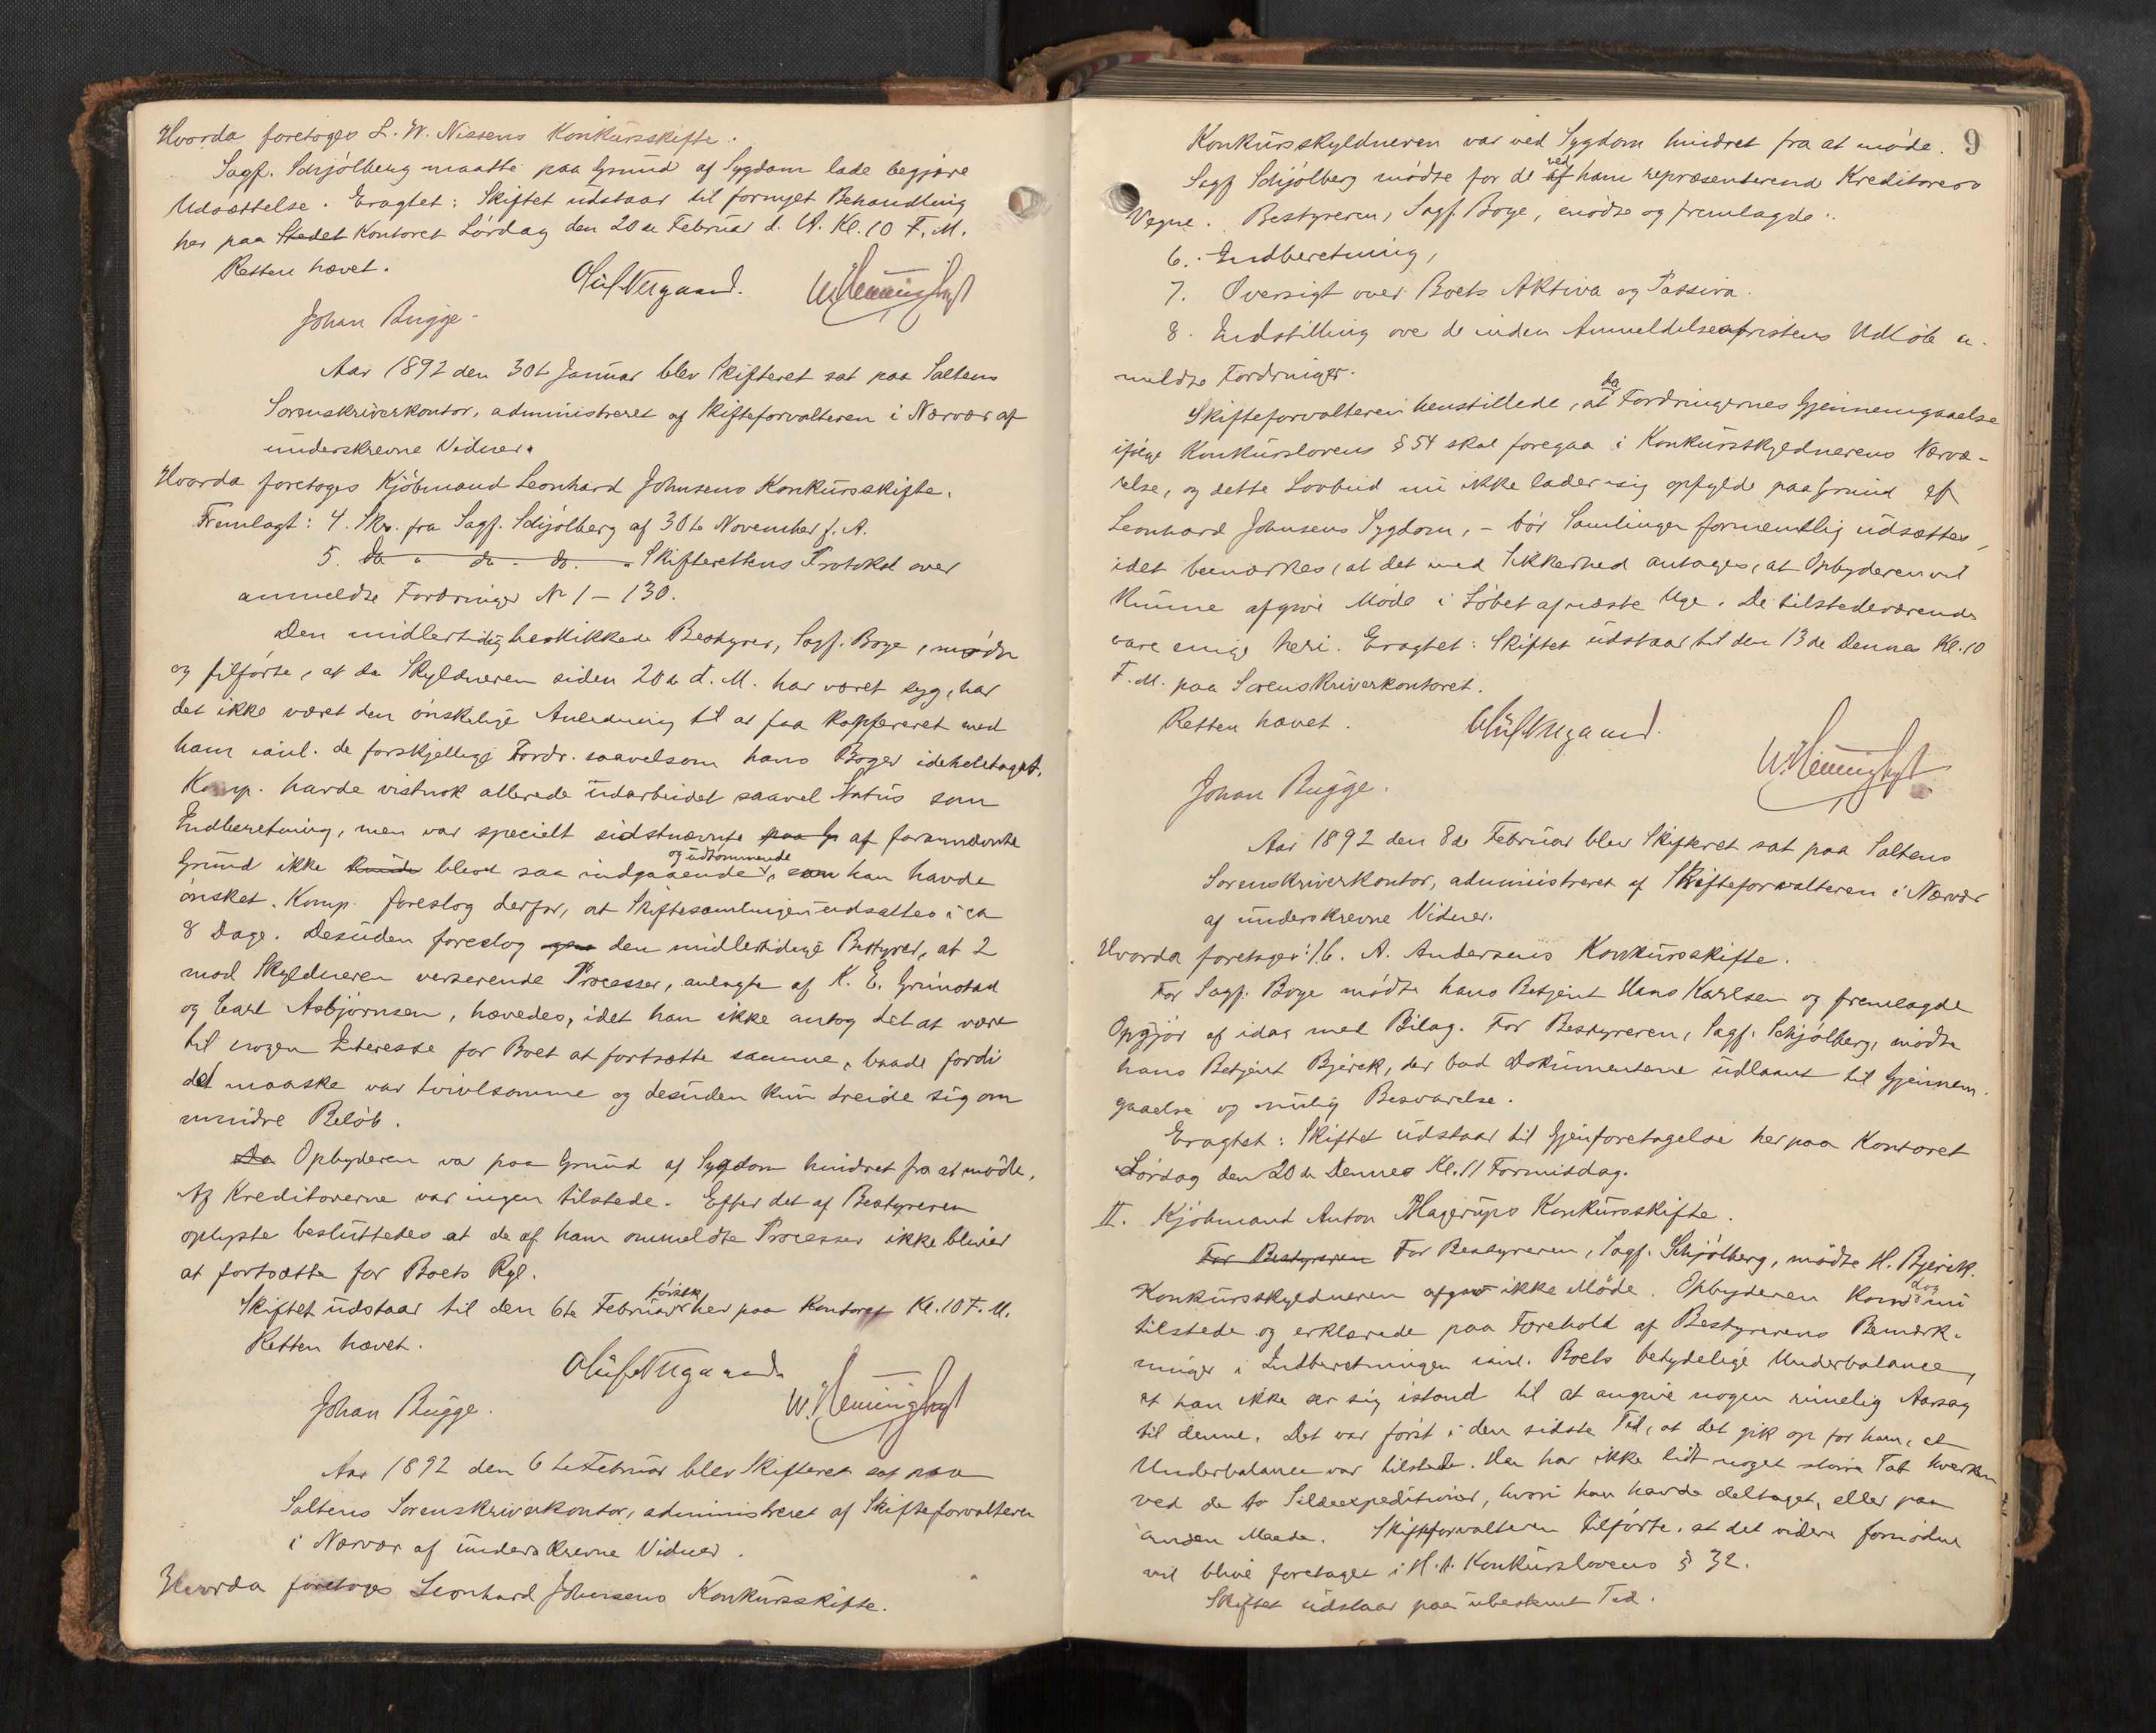 Hvorda foretoges L. W. Nissens Konkursskifte.
Sagf. Schjölberg maatte paa Grund af Sygdom lade begjære
Udsættelse. Eragtet: Skiftet udstaar til fornyet Behandling
her paa Stedet Kontoret Lördag den 20de Februar d. A. Kl. 10 F. M.
Retten hævet.
Oluf Nergaard.
Johan Bugge.
Aar 1892 den 30te Januar blev Skifteret sat paa Saltens
Sorenskriverkontor, administreret af Skifteforvalteren i Nærvær af
underskrevne Vidner.
Hvorda foretoges Kjöbmand Leonhard Johnsens Konkursskifte.
Fremlagt: 4. Skr. fra Sagf. Schjölberg af 30te November f. A.
5. do " do . do. " Skifterettens Protokol over
anmeldte Fordringer No 1 - 130.
Den midlertidig beskikkede Bestyrer, Sagf. Boye, mödte
og tilförte, at da Skyldneren siden 20de d. M. har været syg, har
det ikke været den önskelige Anledning til at faa konfereret med
ham anl. de forskjellige Fordr. saavelsom hans Böger idetheletaget.
Komp. havde vistnok allerede udarbeidet saavel Status som
Indberetning, men var specielt sidstnævnte paa Gr af forannævnte
Grund ikke kunde blevet saa indgaaende og udtömmende, som han havde
önsket. Komp. foreslog derfor, at Skiftesamlingen udsattes i ca
8 Dage. Desuden foreslog den midlertidige Bestyrer, at 2
mod Skyldneren verserende Processer, anlagte af K. E. Grimstad
og Carl Asbjörnsen, hævedes, idet han ikke antog det at være
til nogen Interesse for Boet at fortsætte samme, baade fordi
det maaske var tvivlsomme og desuden kun dreide sig om
mindre Belöb.
Da Opbyderen var paa Grund af Sygdom hindret fra at möde.
Af Kreditorerne var ingen tilstede. Efter det af Bestyreren
oplyste besluttedes at de af ham ommeldte Processer ikke bliver
at fortsætte for Boets Rgl.
Skiftet udstaar til den 6te Februar förstk. her paa Kontoret Kl. 10 F. M.
Retten hævet.
Oluf Nergaard.
Johan Bugge.
Aar 1892 den 6te Februar blev Skifteret sat paa
Saltens Sorenskriverkontor, administreret af Skifteforvalteren
i Nærvær af underskrevne Vidner.
Hvorda foretoges Leonhard Johnsens Konkursskifte.
9
Konkursskyldneren var ved Sygdom hindret fra at möde.
Sagf Schjölberg mödte for de af ved ham repræsenterende Kreditorers
Vegne. Bestyreren, Sagf. Boye, mödte og fremlagde:
6. Indberetning,
7. Oversigt over Boets Aktiva og Passiva.
8. Indstilling over de inden Anmeldelsesfristens Udlöb an-
meldte Fordringer.
Skifteforvalteren henstillede, at da Fordringernes Gjennemgaaelse
ifölge Konkurslovens § 54 skal foregaa i Konkursskyldnerens Nærvæ-
relse, og dette Lovbud nu ikke lader sig opfylde paa Grund af
Leonhard Johnsens Sygdom, - bör Samlingen formentlig udsættes,
idet bemærkes, at det med Sikkerhed antages, at Opbyderen vil
kunne afgive Möde i Löbet af næste Uge. De tilstedeværende
vare enige heri. Eragtet: Skiftet udstaar til den 13de Dennes Kl. 10
F. M. paa Sorenskriverkontoret.
Retten hævet.
Oluf Nergaard.
Johan Bugge.
Aar 1892 den 8de Februar blev Skifteret sat paa Saltens
Sorenskriverkontor, administreret af Skifteforvalteren i Nærvær
af underskrevne Vidner.
Hvorda foretoges: A. Andersens Konkursskifte.
For Sagf. Boye mödte hans Betjent Hans Karlsen og fremlagde
Opgjör af idag med Bilag. For Bestyreren, Sagf. Schjölberg, mödte
hans Betjent Bjerck, der bad Dokumenterne udlaant til Gjennem-
gaaelse og mulig Besvarelse.
Eragtet: Skiftet udstaar til Gjenforetagelse her paa Kontoret
Lördag den 20de Dennes Kl. 11 Formiddag.
II. Kjöbmand Anton Hagerups Konkursskifte.
For Bestyreren For Bestyreren, Sagf. Schjölberg, mödte H. Bjerck.
Konkursskyldneren afgav ikke Möde. Opbyderen kom dog nu
tilstede og erklærede paa Forehold af Bestyrerens Bemærk-
ninger i Indberetningen anl. Boets betydelige Underbalance,
at han ikke ser sig istand til at angive nogen rimelig Aarsag
til denne. Det var först i den sidste Tid, at det gik op for ham, at
Underbalance var tilstede. Han har ikke lidt noget större Tab hverken
ved de to Sildeexpeditioner, hvori han havde deltaget, eller paa
anden Maade. Skifteforvalteren tilförte, at det videre fornödne
vil blive foretaget i H. t. Konkurslovens § 32.
Skiftet udstaar paa ubestemt Tid.